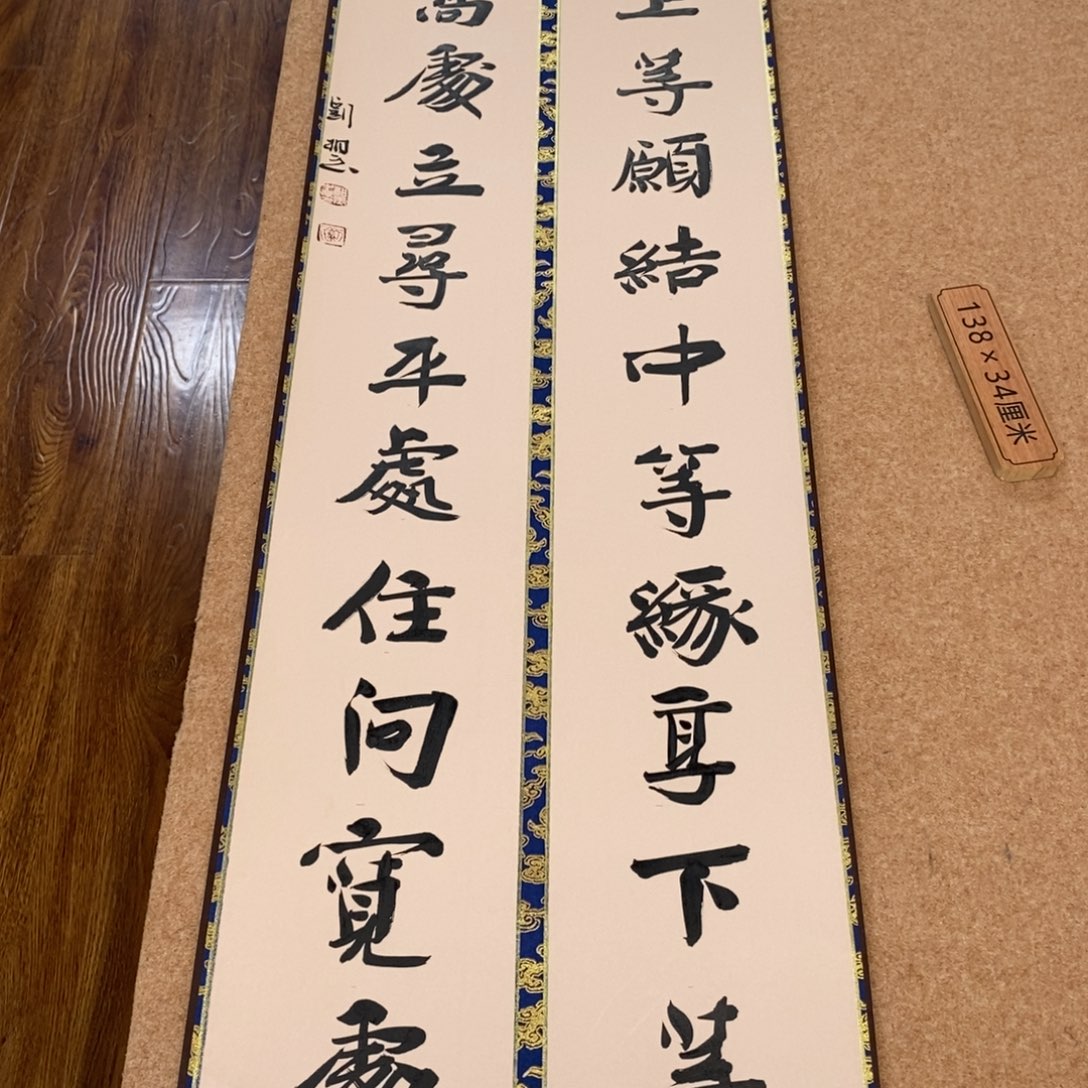 上等願結中等緣享下等
高處立尋平處住向寬處
劉
138×34厘米